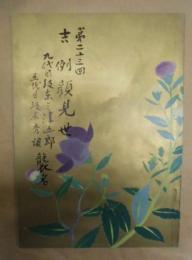 第二十三回
吉例顔見世
九代目坂東三津五郎
五代目坂東秀調
襲名